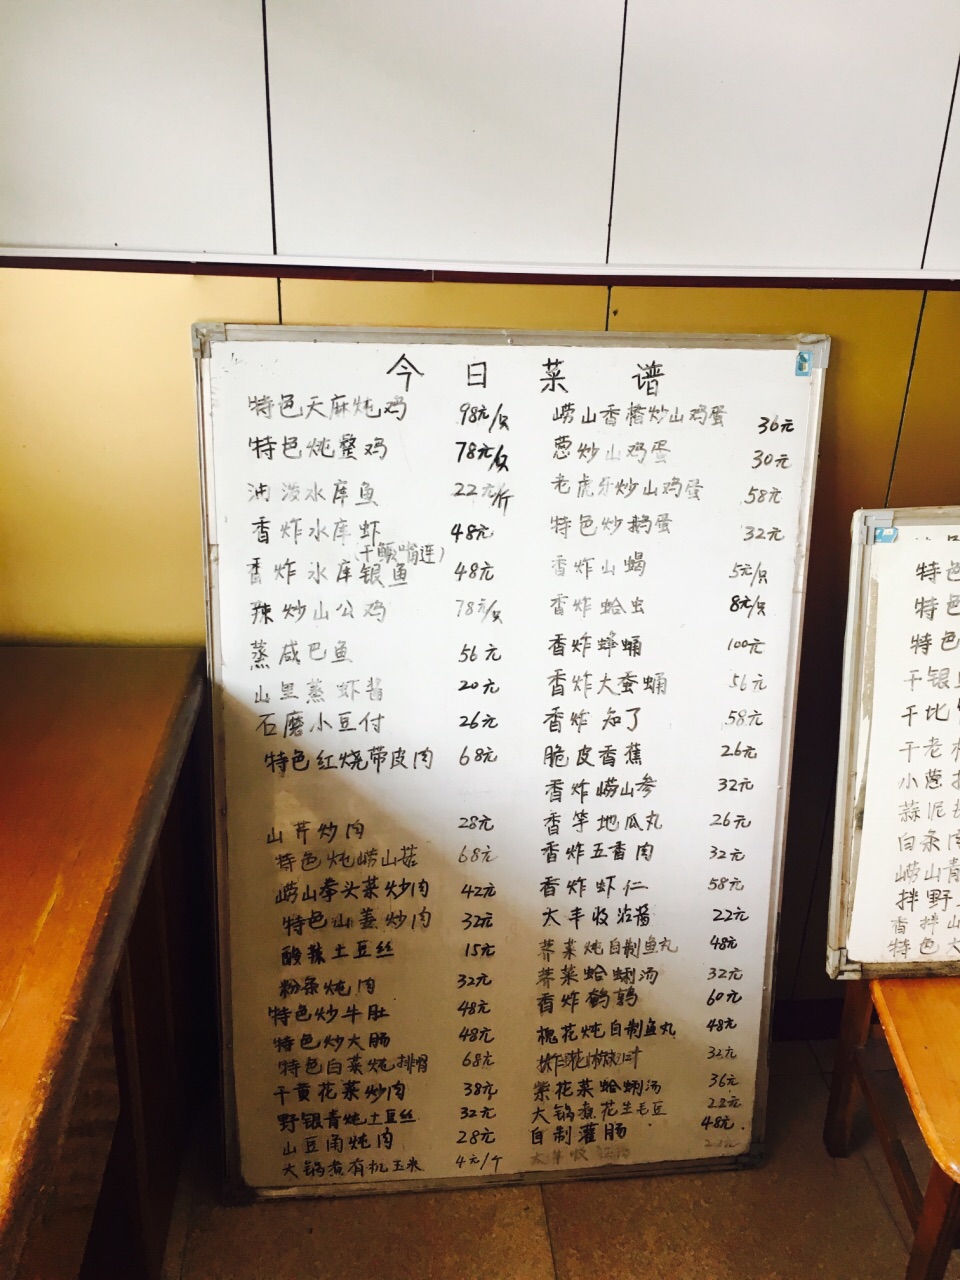 今日菜谱
特色天麻炖鸡 98元/只
特色炖整鸡 78元/只
油泼水库鱼 22元/斤
香炸水库虾 48元
(干颤嘴连)
香炸水库银鱼 48元
辣炒山公鸡 78元/只
蒸咸巴鱼 56元
山里蒸虾酱 20元
石磨小豆付 26元
特色红烧带皮肉 68元
山芹炒肉 28元
特色炖崂山菇 68元
崂山拳头菜炒肉 42元
特色山姜炒肉 32元
酸辣土豆丝 15元
粉条炖肉 32元
特色炒牛肚 48元
特色炒大肠 48元
特色白菜炖排骨 68元
干黄花菜炒肉 38元
野银青炖土豆丝 32元
山豆角炖肉 28元
大锅煮有机玉米 4元/个
崂山香椿炒山鸡蛋 36元
葱炒山鸡蛋 30元
老虎牙炒山鸡蛋 58元
特色炒鹅蛋 32元
香炸山蝎 5元/只
香炸蛤虫 8元/只
香炸蜂蛹 100元
香炸大蚕蛹 56元
香炸知了 58元
脆皮香蕉 26元
香炸崂山参 32元
香芋地瓜丸 26元
香炸五香肉 32元
香炸虾仁 58元
大丰收沾酱 22元
荠菜炖自制鱼丸 48元
荠菜蛤蜊汤 32元
香炸鹌鹑 60元
槐花炖自制鱼丸 48元
32元
紫花菜蛤蜊汤 36元
大锅煮花生毛豆 22元
自制灌肠 48元
大丰收
特色
特色
特色
干银
干比
干老
小葱
蒜泥
白条肉
崂山青
拌野
香拌山
特色大